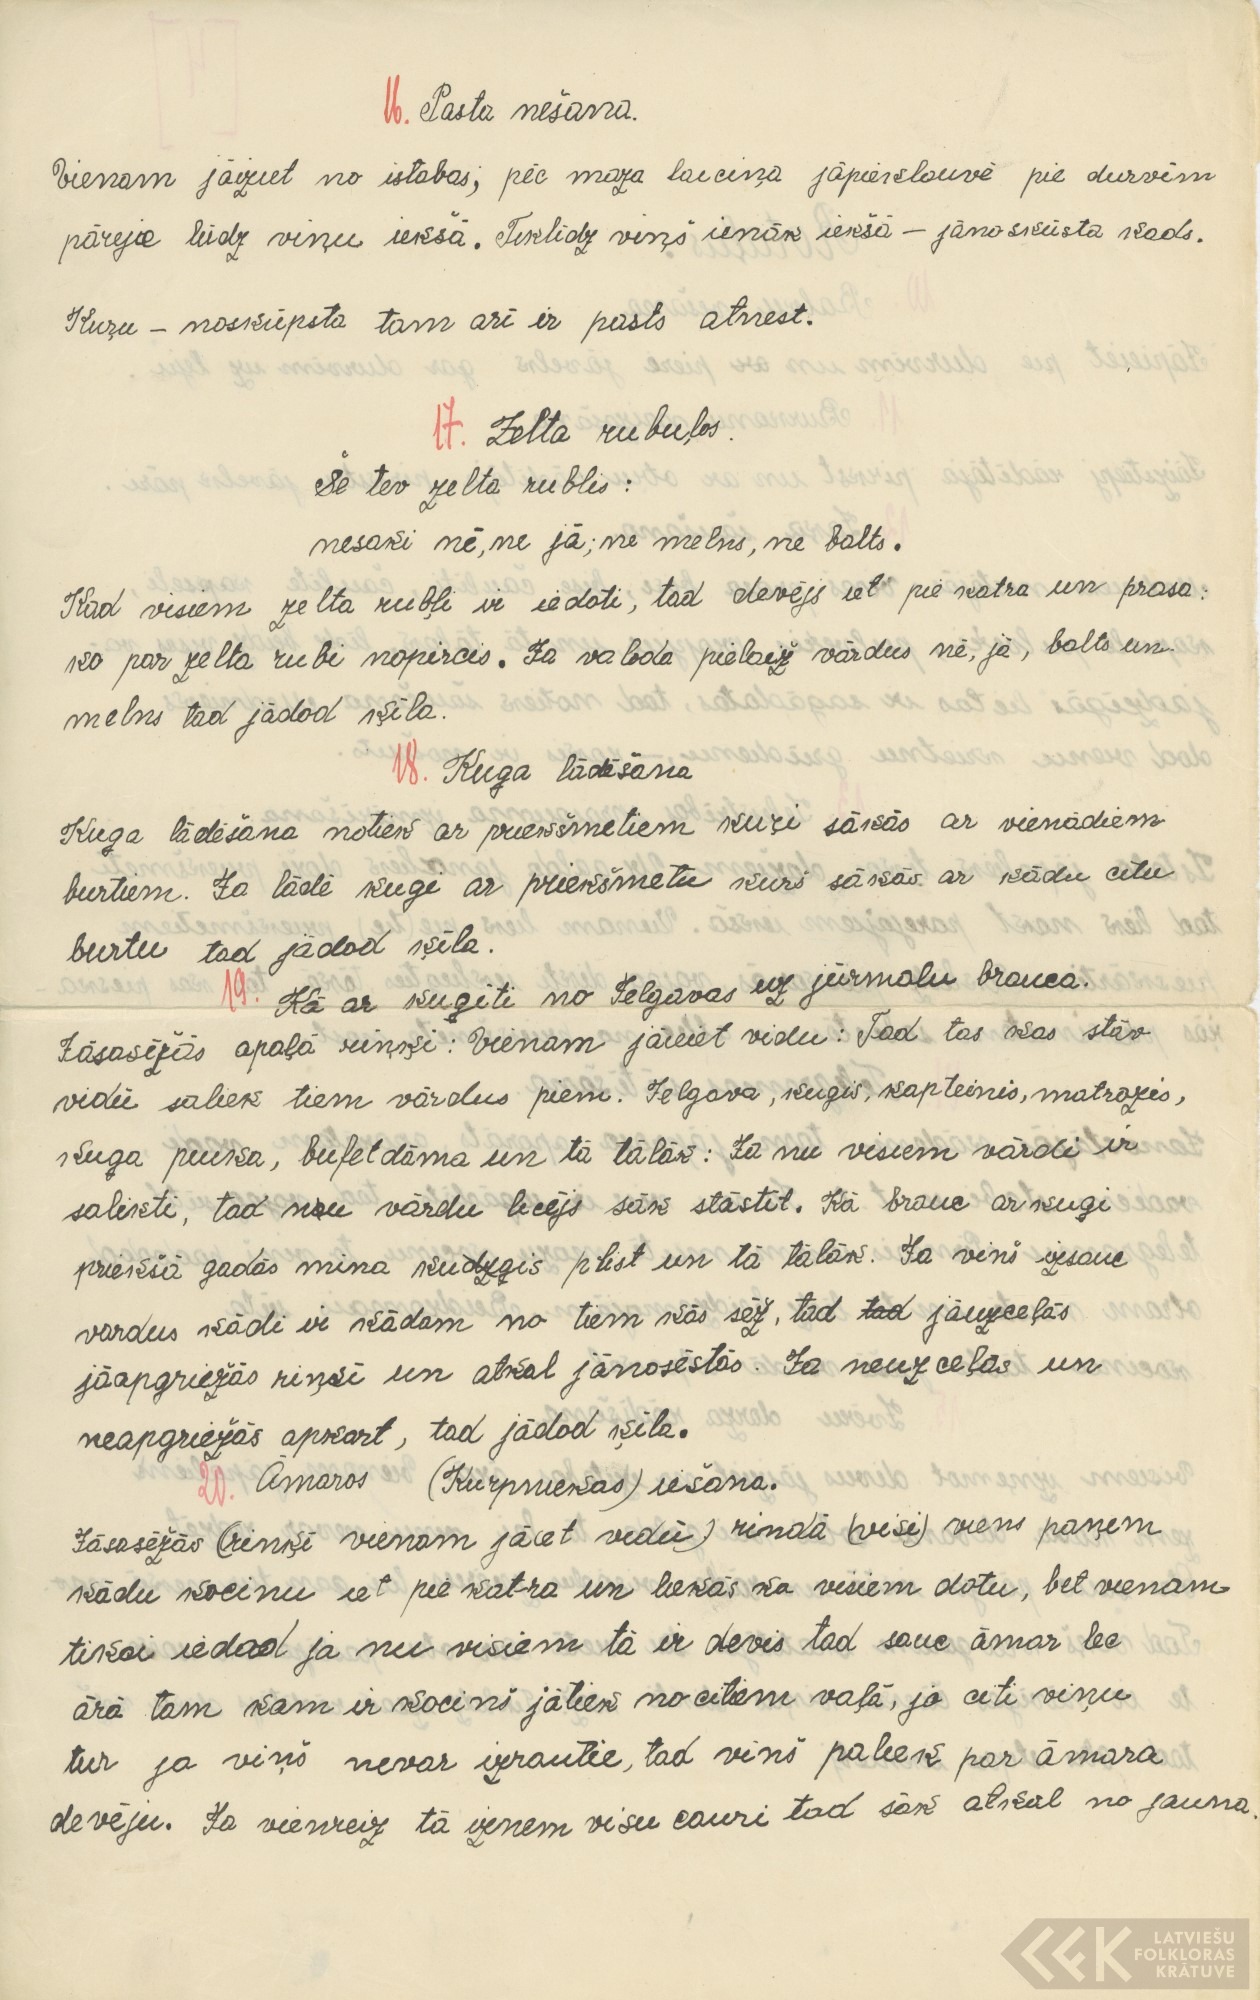 16. Pasta nešana.
Vienam jāiziet no istabas; pēc maza laiciņa jāpieklauvē pie durvīm
pārejie lūdz viņu iekšā. Tiklīdz viņš ienāk iekšā – jānoskūsta kads.
Kuŗu – noskūpsta tam arī ir pasts atnest.
17. Zelta rubuļos.
Še tev zelta rublis:
nesaki nē, ne jā; ne melns, ne balts.
Kad visiem zelta rubļi ir iedoti, tad devējs iet pie katra un prasa:
ko par zelta rubi nopircis. Ja valoda pielaiž vārdus nē, jā, balts un
melns tad jādod ķīla.
18. Kuga lādēšana
Kuga lādēšana notiek ar priekšmetiem kuŗi sākās ar vienādiem
burtiem. Ja lādē kugi ar priekšmetu kurš sākās ar kādu citu
burtu tad jādod ķīla.
19. Kā ar kuģīti no Jelgavas uz jūrmalu brauca.
Jāsasēžās apaļā riņķī: Vienam jāiet vidu: Tad tas kas stāv
vidū saliek tiem vārdus piem. Jelgava, kugis, kapteinis, matrozis,
kuga puika, bufetdāma un tā tālāk: Ja nu visiem vārdi ir
salikti, tad nu vārdu licējs sāk stāstīt. Kā brauc ar kuģi
priekšā gadās mina kugis plīst un tā tālāk. Ja viņš izsauc
vardus kādi ir kādam no tiem kas sēž, tad tad jāuzceļās
jāapgriežās riņķī un atkal jānosēstās. Ja neuzceļās un
neapgriežās apkārt, tad jādod ķīla.
20. Āmaros (Kurpniekas) iešana.
Jāsasēžās (riņķī vienam jāiet vidū) rindā (visi) viens paņem
kādu kociņu iet pie katra un liekās ka visiem dotu, bet vienam
tikai iedod ja nu visiem tā ir devis tad sauc āmar lec
ārā tam kam ir kociņš jātiek no citiem vaļā, ja citi viņu
tur ja viņš nevar izrautie, tad viņš paliek par āmara
devēju. Ja vienreiz tā izņem visu cauri tad sāk atkal no jauna.
LATVIEŠU
FOLKLORAS
KRĀTUVE